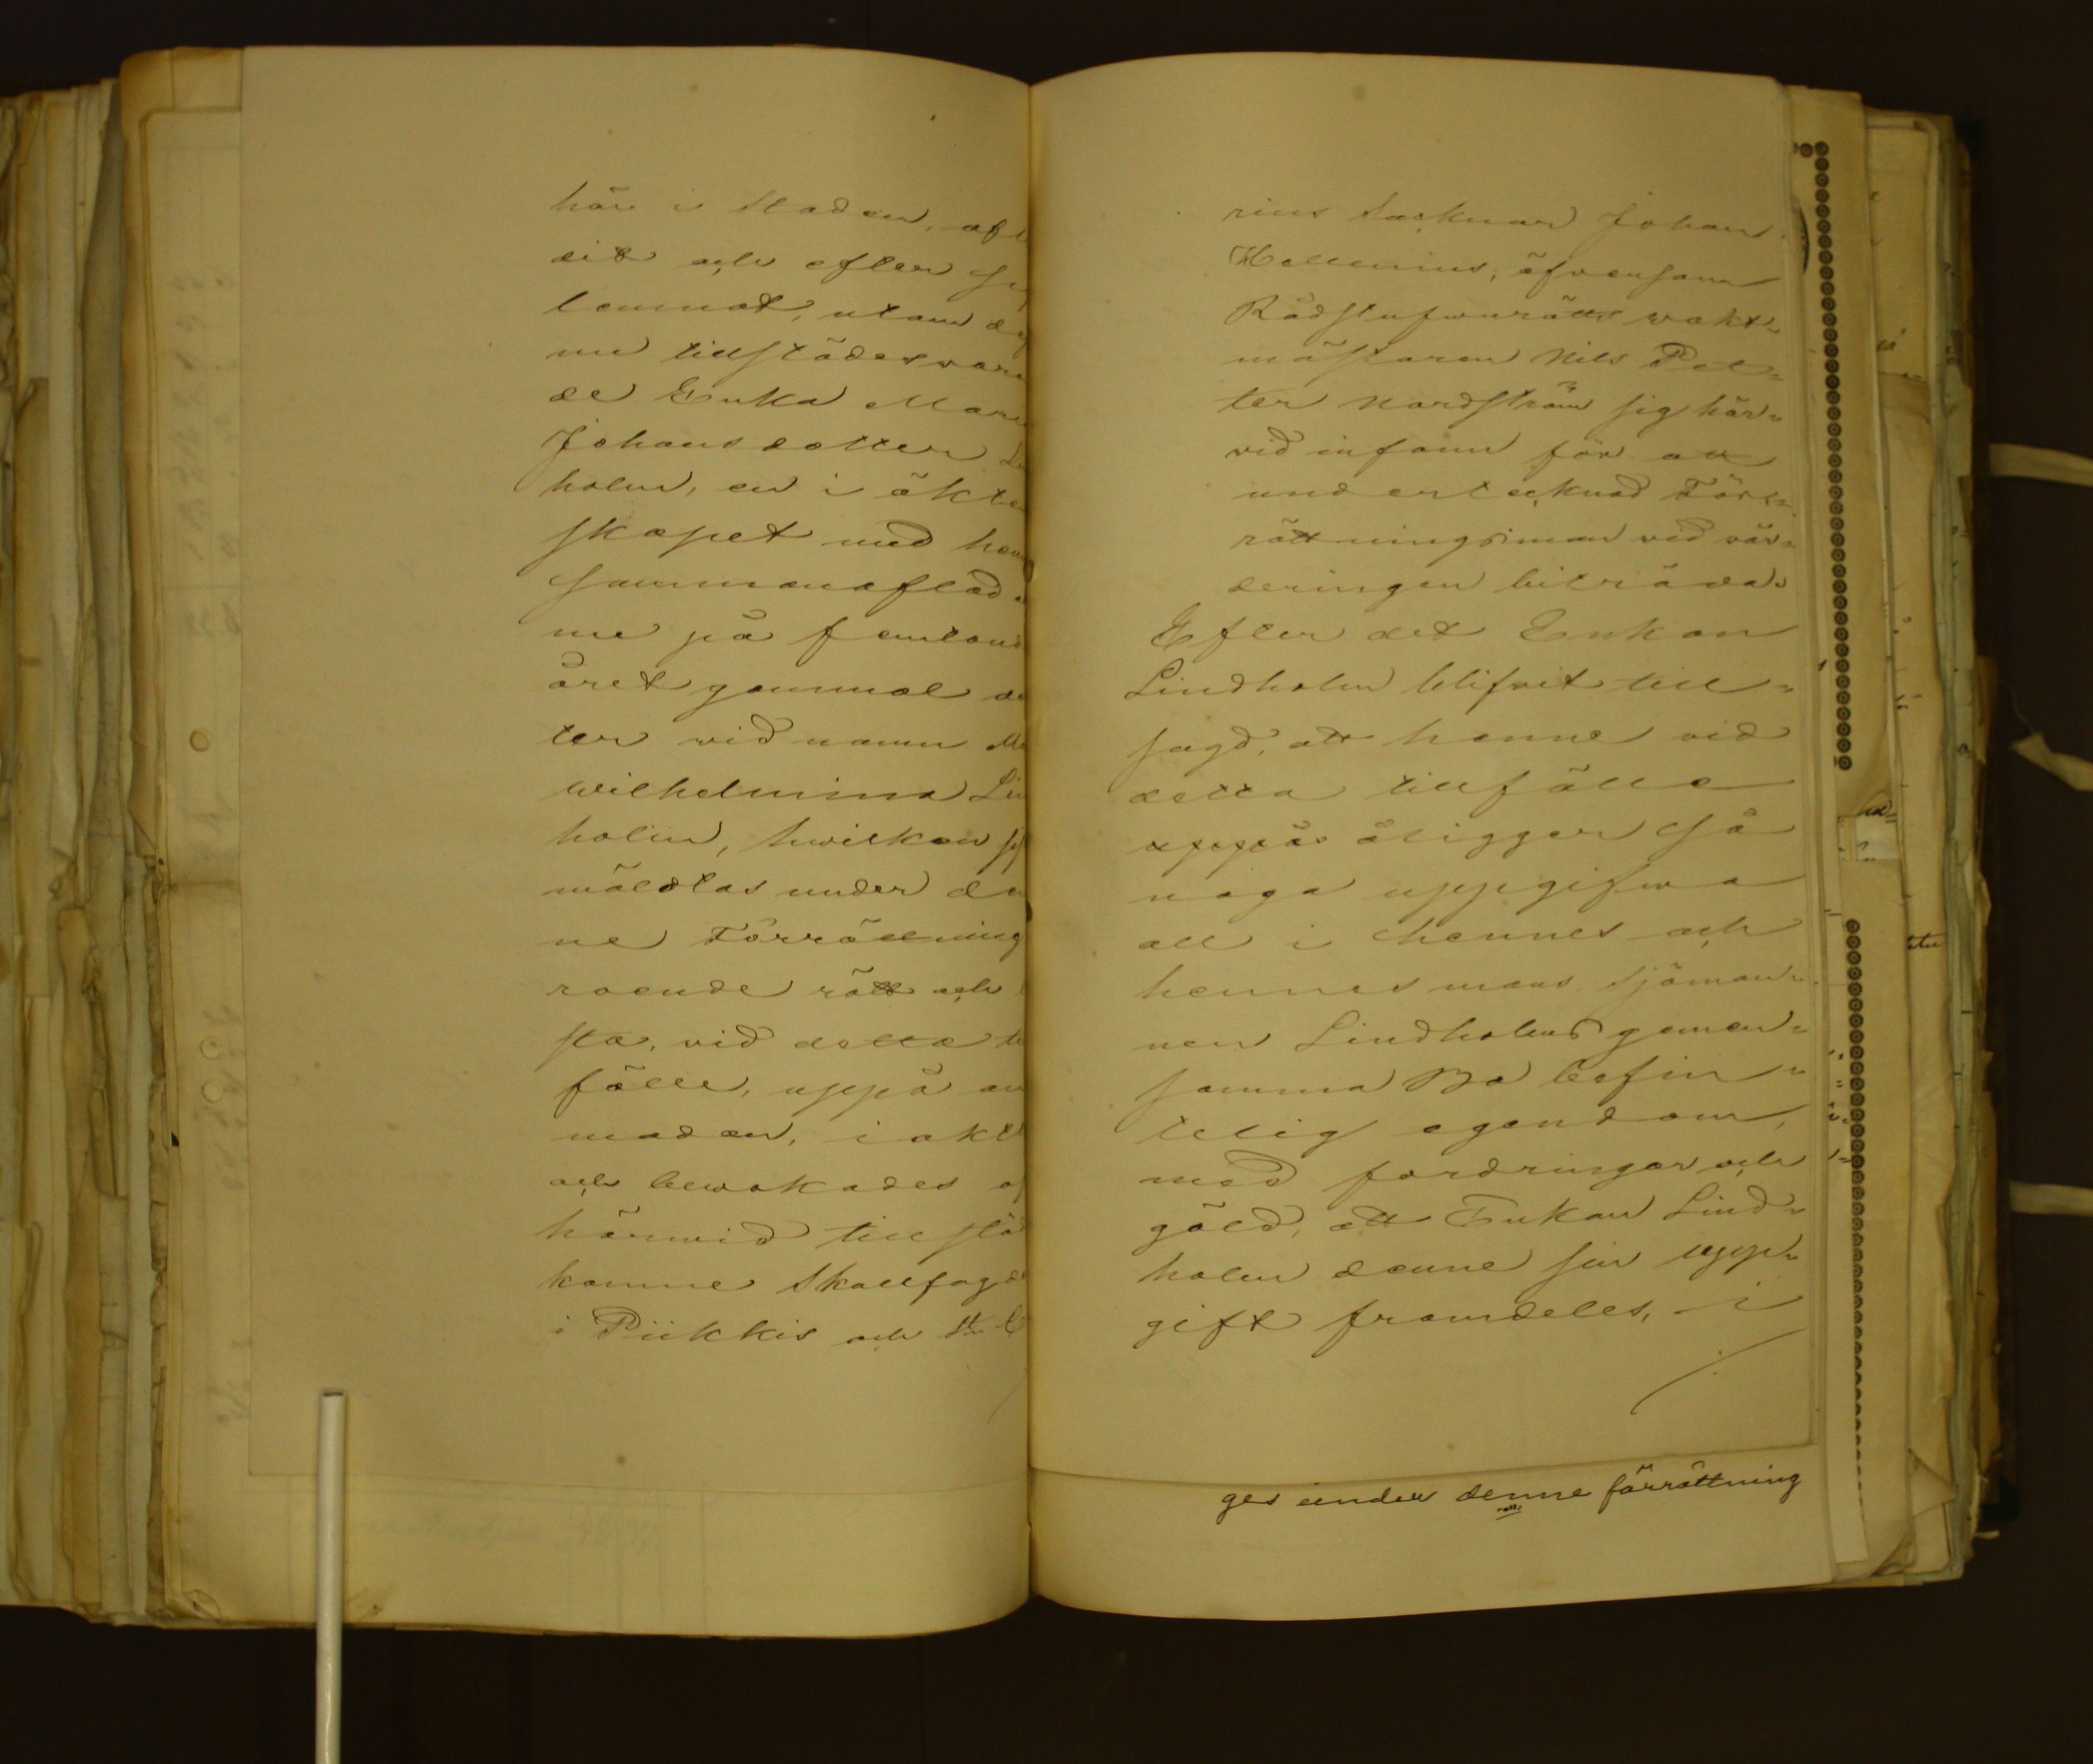 här i Staden, af
dit och efter
lemnat, utom
ne tillstädesvara
de Enka Mari
Johansdotter
holm, en i äkten
skapet med
sammanaflad
ne på femtond
året gammal
ter vid namn
Wilhelmina Lin
holm, hvilken
mäldtas under
ne Förrättning
roende rätt och
sta, vid detta
fälle, uppå
madan, i akt
och bewakades af
härwid tillstäd
komne Skallfogde
i Piikkis och St
rius Saknar Johan
Hellenius, äfvensom
Rådstufwurätts wakt=
mästaren Nils Pet=
ter Nordström sig här=
vid infann för att
undertecknad För=
rättningsman vid vär=
deringen biträda.
Efter det Enkan
Lindholm blifvit till=
sagd, att henne vid
detta tillfälle
åligger så
noga uppgifwa
all i hennes och
hennes mans sjöman=
nen Lindholms gemen=
samma Bo befin=
telig egendom,
med fordringar och
gäld, att Enkan Lind=
holm denne sin upp=
gift framdeles, i
ges under denne förrättning